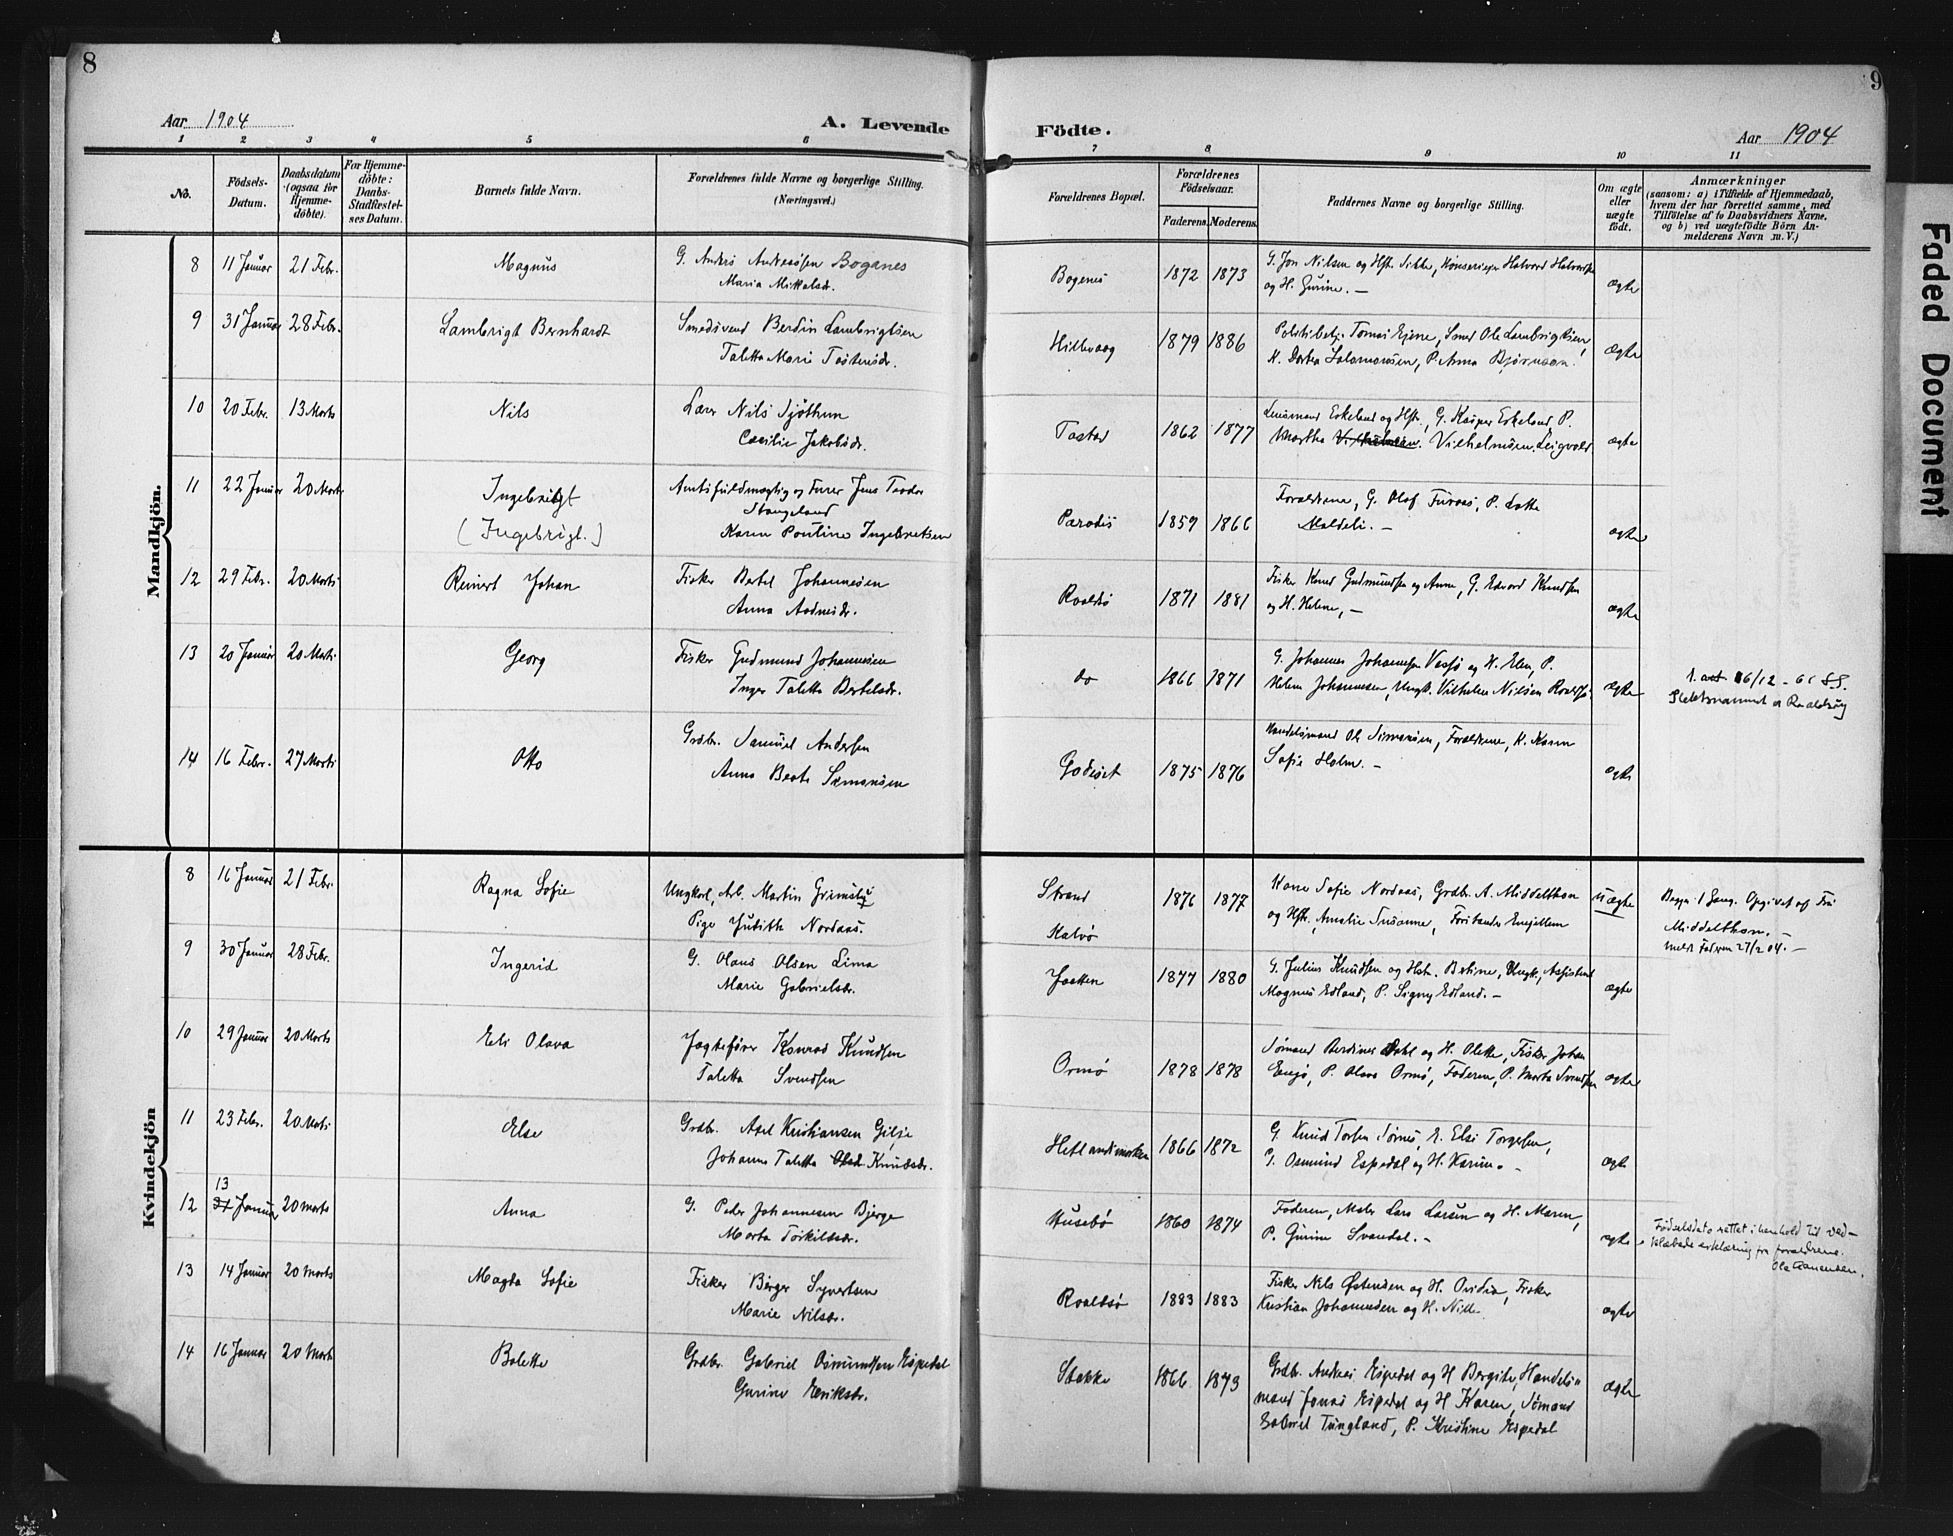 8
Aar 1904
A. Levende
1 2 3 4 5 6
No.
Födsels-Datum.
Daabsdatum (ogsaa for Hjemmedöbte).
For Hjemmedöbte: Daabs-Stadfæstelses Datum.
Barnets fulde Navn.
Forældrenes fulde Navne og borgerlige Stilling.
(Næringsvei.)
Mandkjön.
8 11 Januar 21 Febr. Magnus G. Anders Andreassen Boganes
Maria Mikkelsdr.
9 31 Januar 28 Febr. Lambrigt Bernhardt Smedsvend Berdin Lambrigtsen
Taletta Marie Tostensdr.
10 20 Febr. 13 Marts Nils Lærer Nils Sjøthun
Cæcilie Jakobsdr.
11 22 Januar 20 Marts Ingebrigt Amtsfuldmægtig og Furer Jens Teodor
Stangeland
(Ingebrigt.) Karen Pontine Ingebretsen
12 29 Febr. 20 Marts Reinert Johan Fisker Bertel Johannesen
Anna Aadnesdr.
13 20 Januar 20 Marts Georg Fisker Gudmund Johannesen
Inger Taletta Bertelsdr.
14 16 Febr. 27 Marts Otto Grdbr. Samuel Andersen
Anna Beate Simonsen
Kvindekjön
8 16 Januar 21 Febr. Ragna Sofie Ungkarl, Arb. Martin Grimsby
Pige Judith Nordaas.
9 30 Januar 28 Febr. Ingerid G. Olaus Olsen Lima
Marie Gabrielsdr.
10 29 Januar 20 Marts Eli Olava Jagtefører Konrad Knudsen
Taletta Svendsen
11 23 Febr. 20 Marts Else Grdbr. Axel Kristiansen Gilje
Johanne Taletta Knudsdr.
13
12 31 Januar 20 marts Anna G. Peder Johannesen Bjerge
Marta Torkilsdr.
13 14 Januar 20 marts Magda Sofie Fisker Børger Syvertsen
Marie Nilsdr.
14 16 Januar 20 marts Bolette Grdbr. Gabriel Osmundsen Espedal
Gurine Eriksdr.
9
Födte.
Aar 1904
7 8 9 10 11
Forældrenes Bopæl.
Forældrenes Födselsaar.
Faderens. Moderens.
Faddernes Navne og borgerlige Stilling.
Om ægte eller uægte födt.
Anmærkninger
(saasom: a) i Tilfælde af Hjemmedaab, hvem der har forrettet samme, med Tilföielse af to Daabsvidners Navne. og b) ved uægtefödte Börn Anmelderens Navn m. V.)
Bogenes 1872 1873 G. Jon Nilsen og Hst. Sikke, Kønseriejer Halvord Halvordsen
og H. Gurine. — ægte
Hillevaag 1879 1886 Politibetj. Tomas Ejene, Smed Ole Lambrigtsen,
K. Dortea Salamonsen, P. Anna Bjørnsson. ægte
Tastad 1862 1877 Lensmand Eskeland og Hst., G. Kasper Eskeland, P.
Martha Vilhelmsen. Vilhelmsen. Leigvold ægte
Paradis 1859 1866 Forældrene, G. Olaf Furaas, P. Lotte
Maldeli. — ægte
Roaldsø 1871 1881 Fisker Knud Gudmundsen og Anne, G. Edvard Knudsen
og H. Helene, — ægte
do 1866 1871 G. Johannes Johannesen Vassø og H. Elen, P.
Helene Johannesen, Ungk. Vilhelm Nilsen Roaldsø ægte
16/12 - 61 SS.
Slektsnavnet er Roaldsøy
Godeset 1875 1876 Handelsmand Ole Simonsen, Forældrene, K. Karen
Sofie Holm. — ægte
Strand 1876 1877 Kone Sofie Nordaas, Grdbr. A. Middelthon uægte
Kalvø og Hst. Amalie Susanne, Forstander Engjellem
Begges 1 Gang. Opgivet af Fru
Middelthon. —
meldt Faderen 27/2 04. —
Jaatten 1877 1880 G. Julius Knudsen og Hst. Betine, Ungk. Assistent
Magnus Edland, P. Signy Edland. — ægte
Ormø 1878 1878 Sømand Berdines Dahl og H. Olette, Fisker Johan
Engø, P. Olava Ormø, Faderen, P. Marta Svendsen ægte
Hetlandsmarken 1866 1872 G. Knud Torsen Sørnes, E. Elsi Torgesen,
G. Osmund Espedal og H. Karine. — ægte
Husebø 1860 1874 Faderen, Maler Lars Larsen og H. Maren,
P. Gurine Svandal. — ægte
Fødselsdato rettet i henhold til ved-
klæbede erklæring fra forældrene.
Ole Aanensen.
Roaldsø 1883 1883 Fisker Nils Østensen og H. Ovidia, Fisker
Kristian Johannesen og H. Nille ægte
Stokke 1866 1873 Grdbr. Andreas Espedal og H Bergite, Handels-
mand Jonas Espedal og H Karen, Sømand
Gabriel Tungland, P. Kristine Espedal ægte
Faded Document